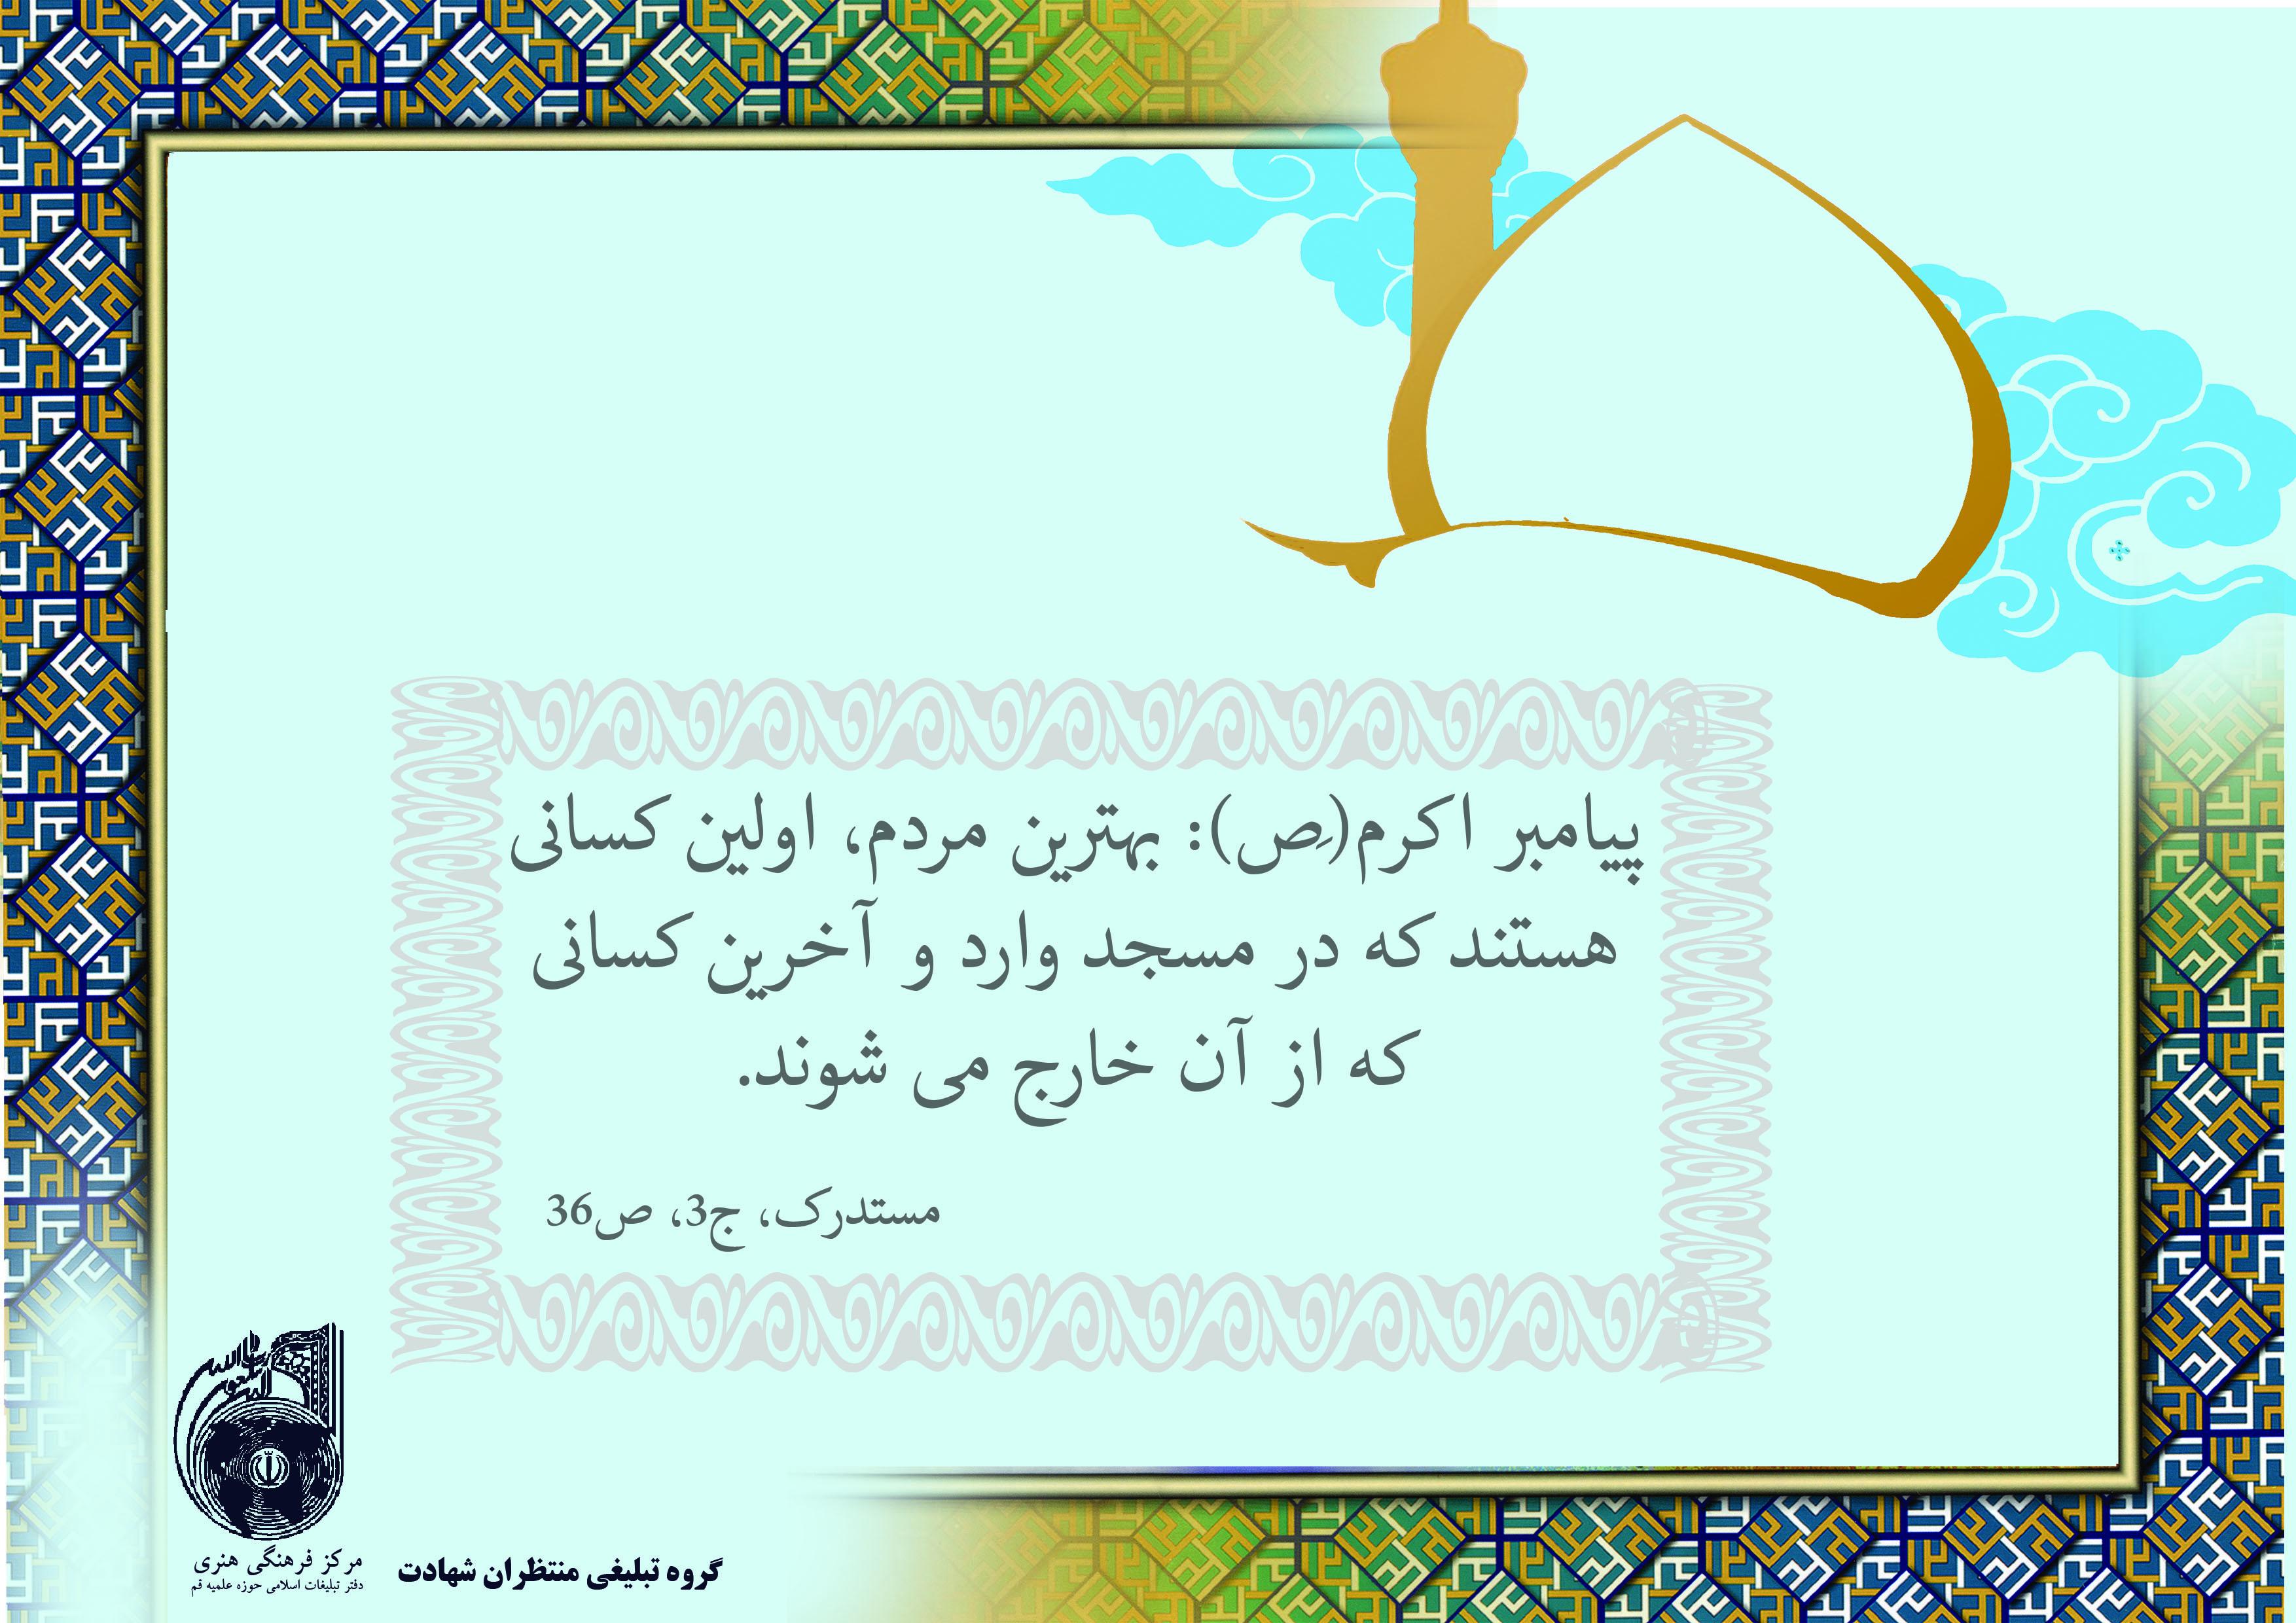 پیامبر اکرم(ِص): بهترین مردم، اولین کسانی
هستند که در مسجد وارد و آخرین کسانی
که از آن خارج می شوند.
مستدرک، ج3، ص36
مرکز فرهنگی هنری
دفتر تبلیغات اسلامی حوزه علمیه قم
گروه تبلیغی منتظران شهادت